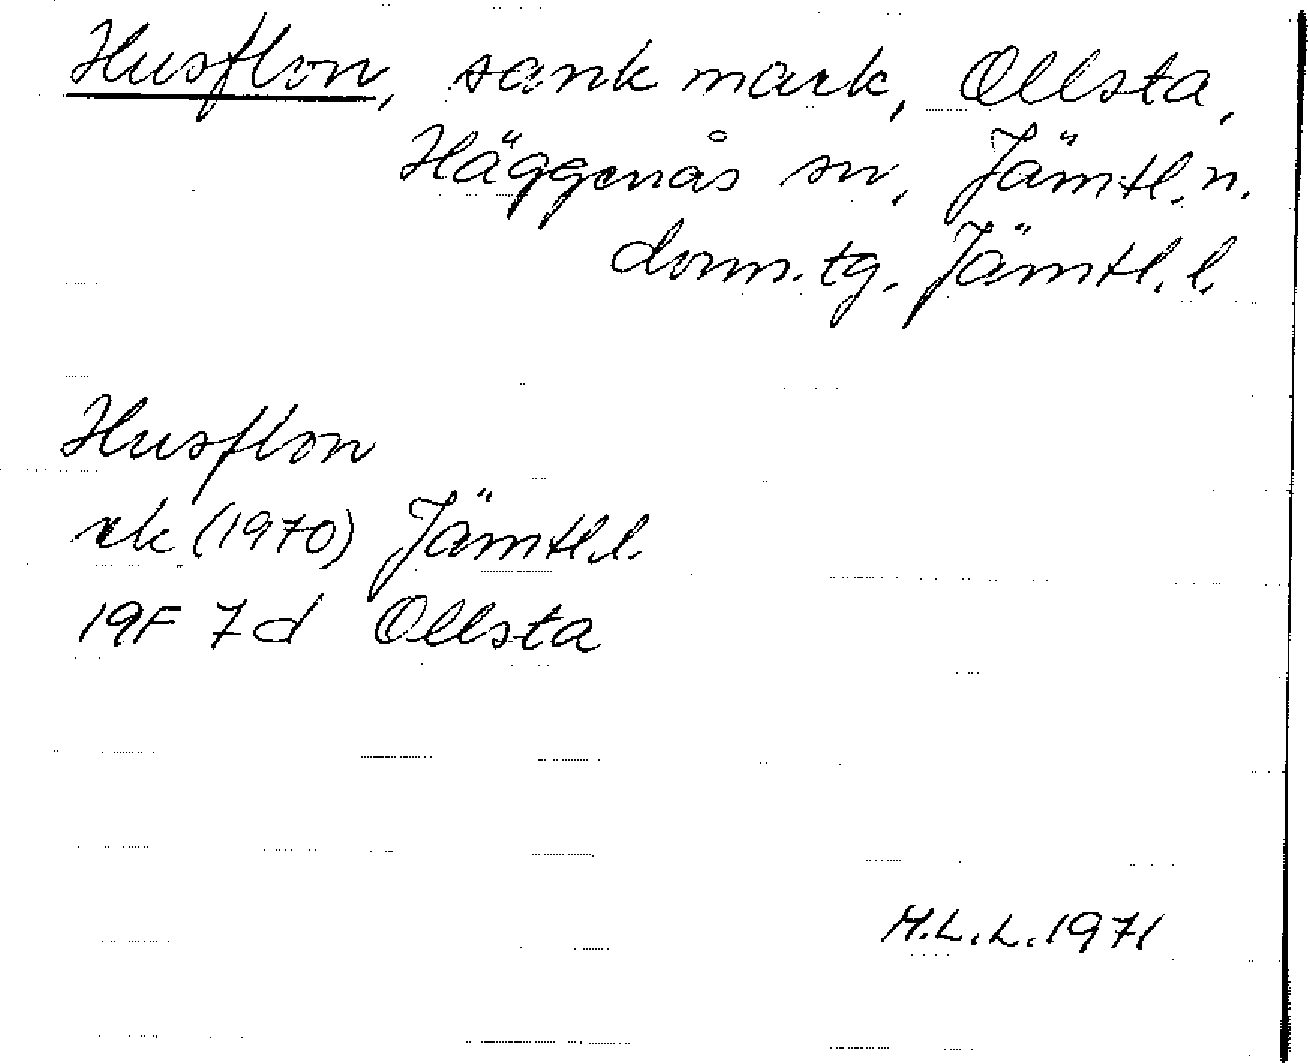 Husflon, sank mark, Ollsta,
Häggenås sn, Jämtl. n.
dom. tg. Jämtl. l.
Husflon
rk (1970) Jämtl. l.
19F 7d Ollsta
M.L.L. 1971